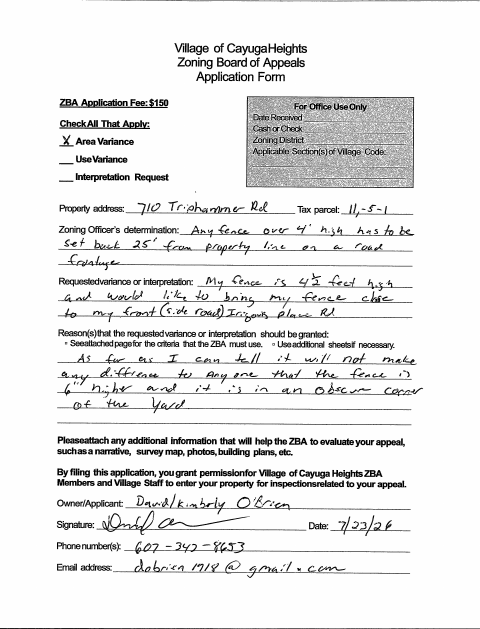 Village of Cayuga Heights
Zoning Board of Appeals
Application Form
ZBA Application Fee: $150
Check All That Apply:
X Area Variance
Use Variance
Interpretation Request
For Office Use Only
Date Received
Cash or Check
Zoning District
Applicable Section(s) of Village Code:
Property address: 710 Triphammer Rd Tax parcel: 11,-5-1
Zoning Officer's determination: Any fence over 4' high has to be
set back 25' from property line on a road
frontage
Requested variance or interpretation: My fence is 4½ feet high
and would like to bring my fence close
to my front (side road) place Rd
Reason(s) that the requested variance or interpretation should be granted:
▫ See attached page for the criteria that the ZBA must use. ▫ Use additional sheets if necessary.
As far as I can tell it will not make
any difference to anyone that the fence is
6" higher and it is in an obscure corner
of the yard
Please attach any additional information that will help the ZBA to evaluate your appeal,
such as a narrative, survey map, photos, building plans, etc.
By filing this application, you grant permission for Village of Cayuga Heights ZBA
Members and Village Staff to enter your property for inspections related to your appeal.
Owner/Applicant: David/Kimberly O'Brien
Signature: Date: 7/23/26
Phone number(s): 607-342-8653
Email address: dobrien1718@gmail.com